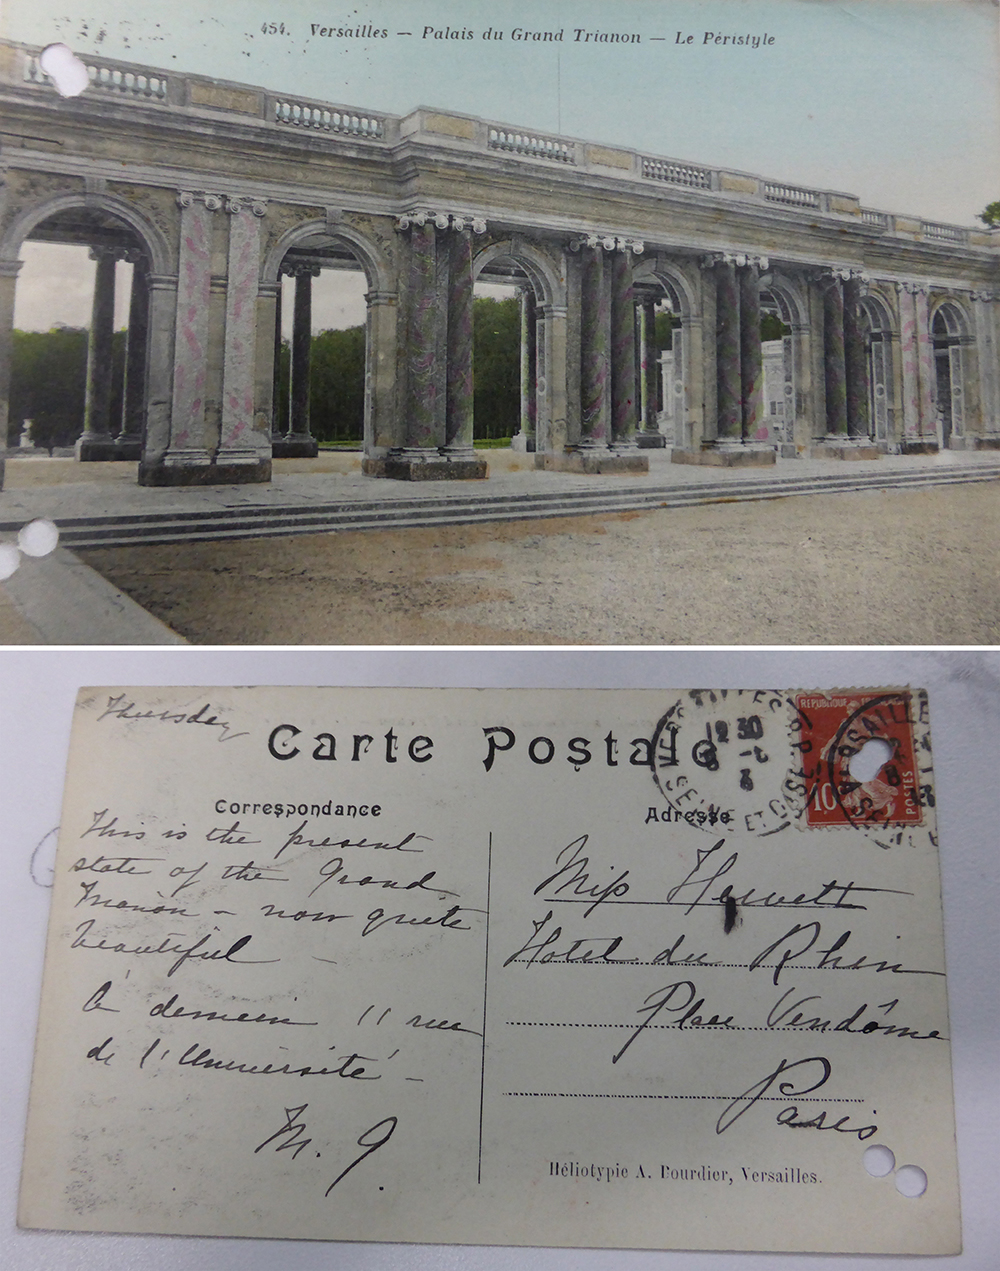 454. Versailles — Palais du Grand Trianon — Le Péristyle
Thursday
Carte Postale
Correspondance
Adresse
12 30
SEINE ET OISE
REPUBLIQUE
10
POSTES
VERSAILLES
This is the present
state of the Grand
Trianon – now quite
beautiful –
À demain 11 rue
de l'Université –
M. G.
Miss Hewett
Hotel du Rhin
Place Vendôme
Paris
Héliotypie A. Bourdier, Versailles.